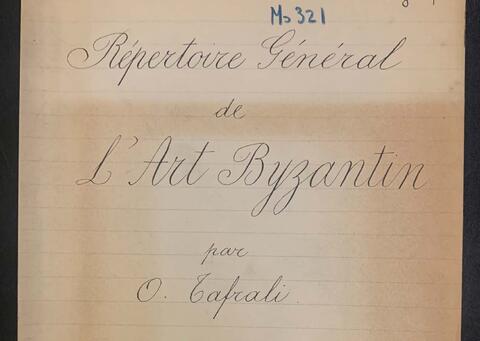 Ms 321
Répertoire Général
de
L'Art Byzantin
par
O. Tafrali